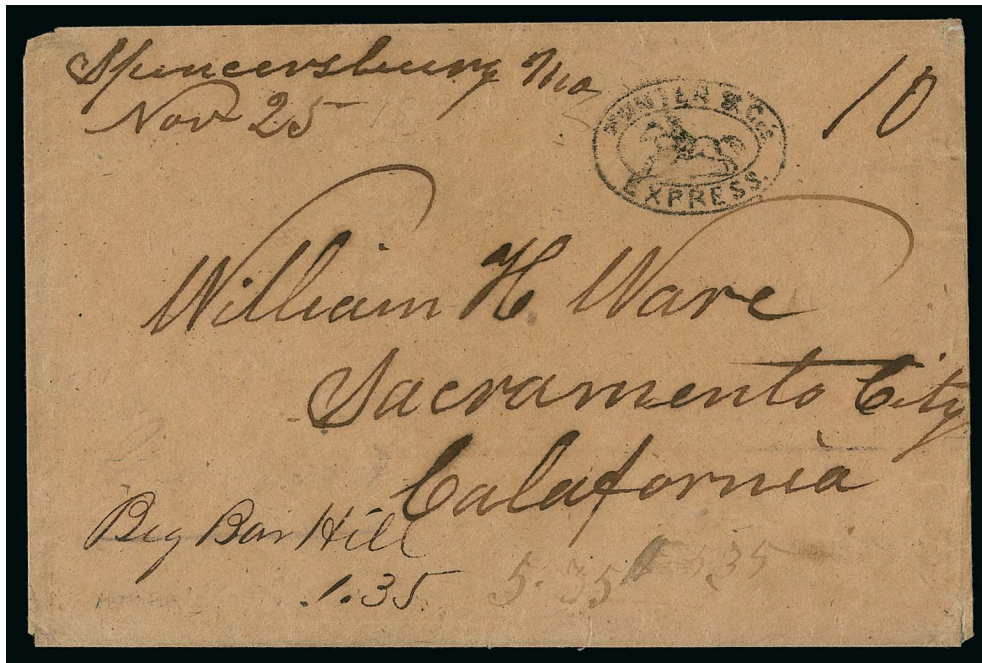 Spencersburg Mo
Nov 25
HUNTER & CO'S
EXPRESS.
10
William H Ware
Sacramento City
Calafornia
Big Bar Hill
1.35
5.35
535